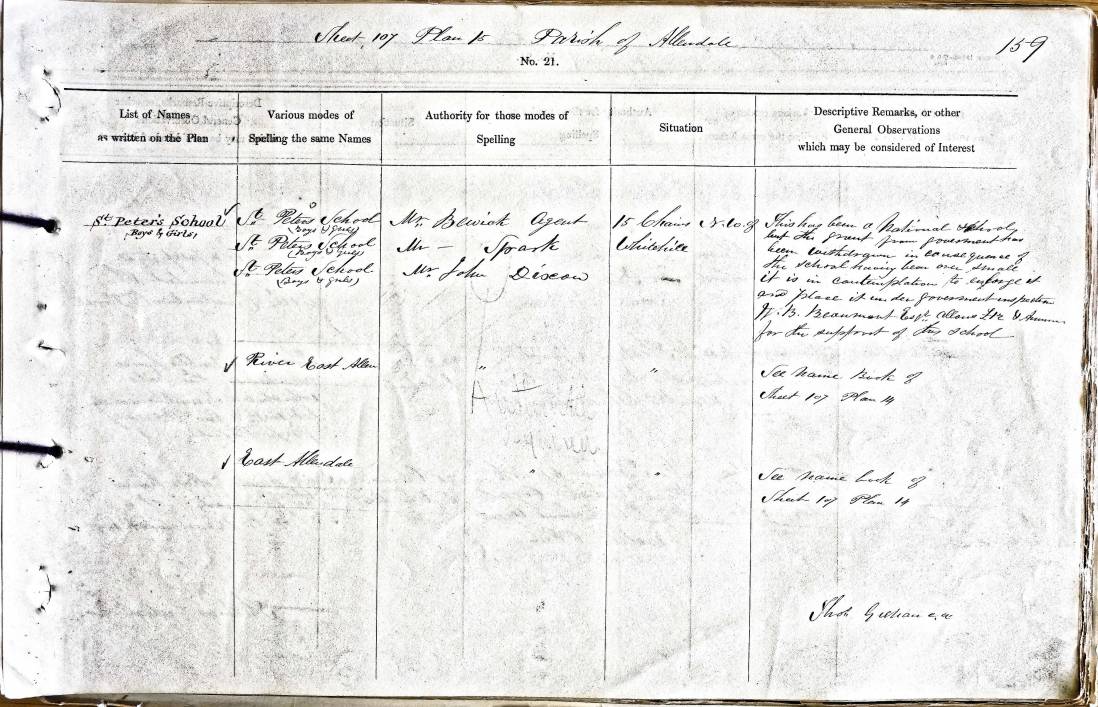 Sheet 107 Plan 15 Parish of Allendale
159
No. 21.
List of Names
as written on the Plan
Various modes of
Spelling the same Names
Authority for those modes of
Spelling
Situation
Descriptive Remarks, or other
General Observations
which may be considered of Interest
St. Peter's School
(Boys & Girls)
St. Peters School
(Boys & Girls)
St. Peters School
(Boys & Girls)
St. Peters School
(Boys & Girls)
Mr. Bewick Agent
Mr — Spark
Mr. John Dixon
15 Chains N.W. of
Whitehill
This has been a National School,
but the grant from government has
been withdrawn in consequence of
the school having been over small
it is in contemplation to enlarge it
and place it under government inspection
W. B. Beaumont Esqr. allows £ Annum
for the support of this school
River East Allen
"
"
See Name Book of
Sheet 107 Plan 14
East Allendale
"
"
See name book of
Sheet 107 Plan 14